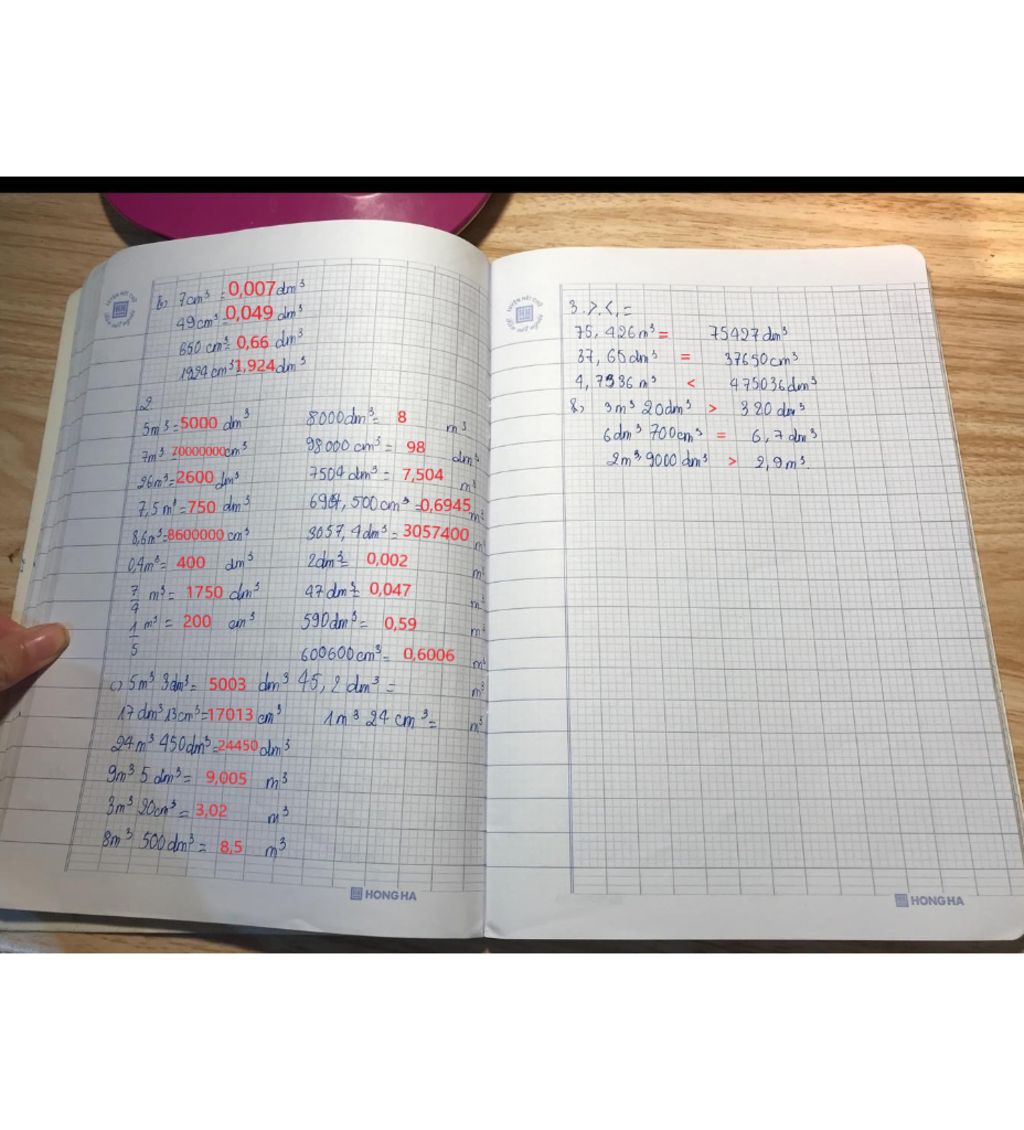 b) 7cm³ = 0,007 dm³
49cm³ = 0,049 dm³
650 cm³ = 0,66 dm³
1924 cm³ = 1,924 dm³
2
5m³ = 5000 dm³
7m³ = 70000000 cm³
26m³ = 2600 dm³
7,5 m³ = 750 dm³
8,6m³ = 8600000 cm³
0,4m³ = 400 dm³
7/4 m³ = 1750 dm³
1/5 m³ = 200 cm³
8000dm³ = 8 m³
98000 cm³ = 98 dm³
7504 dm³ = 7,504 m³
500 cm³ = 0,6945 m³
3057,4dm³ = 3057400 m³
2dm³ = 0,002 m³
47dm³ = 0,047 m³
590dm³ = 0,59 m³
600600cm³ = 0,6006 m³
45,2 dm³ = m³
1m³ 24 cm³ = m³
c) 5m³ 3dm³ = 5003 dm³
17dm³ 13cm³ = 17013 cm³
24m³ 450dm³ = 24450 dm³
9m³ 5 dm³ = 9,005 m³
3m³ 20cm³ = 3,02 m³
8m³ 500dm³ = 8,5 m³
HONG HA
3. >, <, =
75,426m³ = 75427dm³
37,65dm³ = 37650cm³
4,7536 m³ < 475036dm³
b) 3m³ 20dm³ > 320 dm³
6dm³ 700cm³ = 6,7 dm³
2m³ 9000 dm³ > 2,9m³.
HONG HA